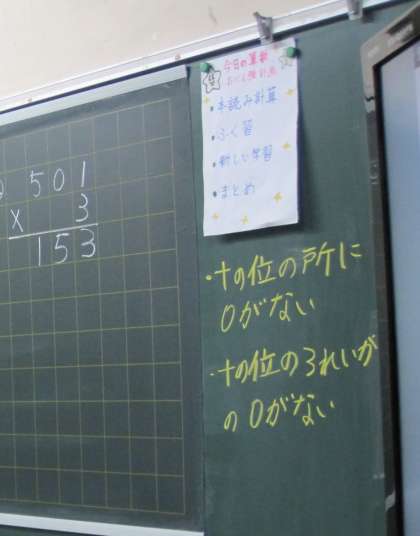 501
× 3
153
今日の算数
・本読み計算
・ふく習
・新しい学習
・まとめ
・十の位の所に
0がない
・十の位の3れいが
の0がない